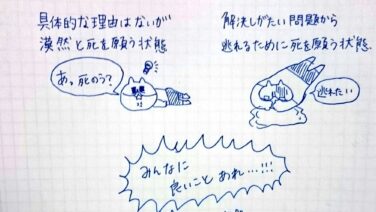 具体的な理由はないが
漠然と死を願う状態
あっ死のう?
解決しがたい問題から
逃れるために死を願う状態.
逃れたい
みんなに
良いことあれ…!!!